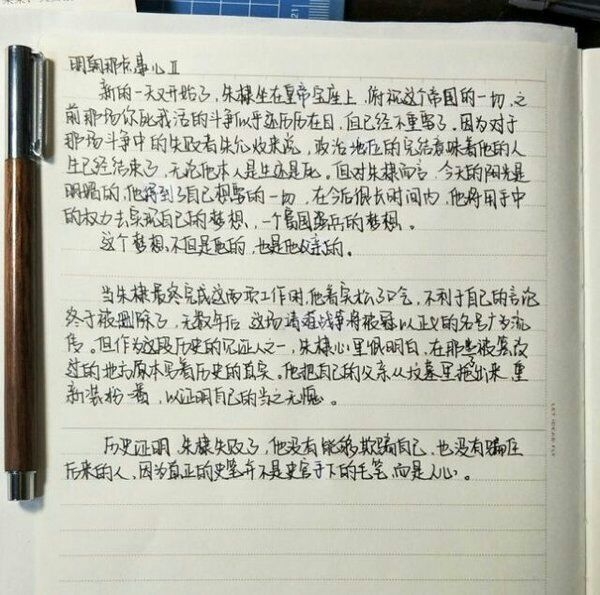 明朝那些事儿 II
新的一天又开始了，朱棣坐在皇帝宝座上，俯视这个帝国的一切，之
前那场你死我活的斗争似乎还历历在目，但已经不重要了。因为对于
那场斗争中的失败者朱允炆来说，政治地位的完结意味着他的人
生已经结束了，无论他本人是生还是死。但对朱棣而言，今天的阳光是
明媚的，他得到了自己想要的一切，在今后很长时间内，他将用手中
的权力去实现自己的梦想，一个富国强兵的梦想。
这个梦想不但是他的，也是他父亲的。
当朱棣最终完成这两项工作时，他着实松了口气，不利于自己的言论
终于被删除了，无数年后，这场靖难战争将被冠以正义的名号广为流
传。但作为这段历史的见证人之一，朱棣心里很明白，在那些被篡改
过的地方原本写着历史的真实。他把自己的父亲从坟墓里拖出来，重
新装扮一番，以证明自己的当之无愧。
历史证明，朱棣失败了，他没有能够欺骗自己，也没有骗住
后来的人，因为真正的史笔并不是史官手下的毛笔，而是人心。
LET IDEAS FLY